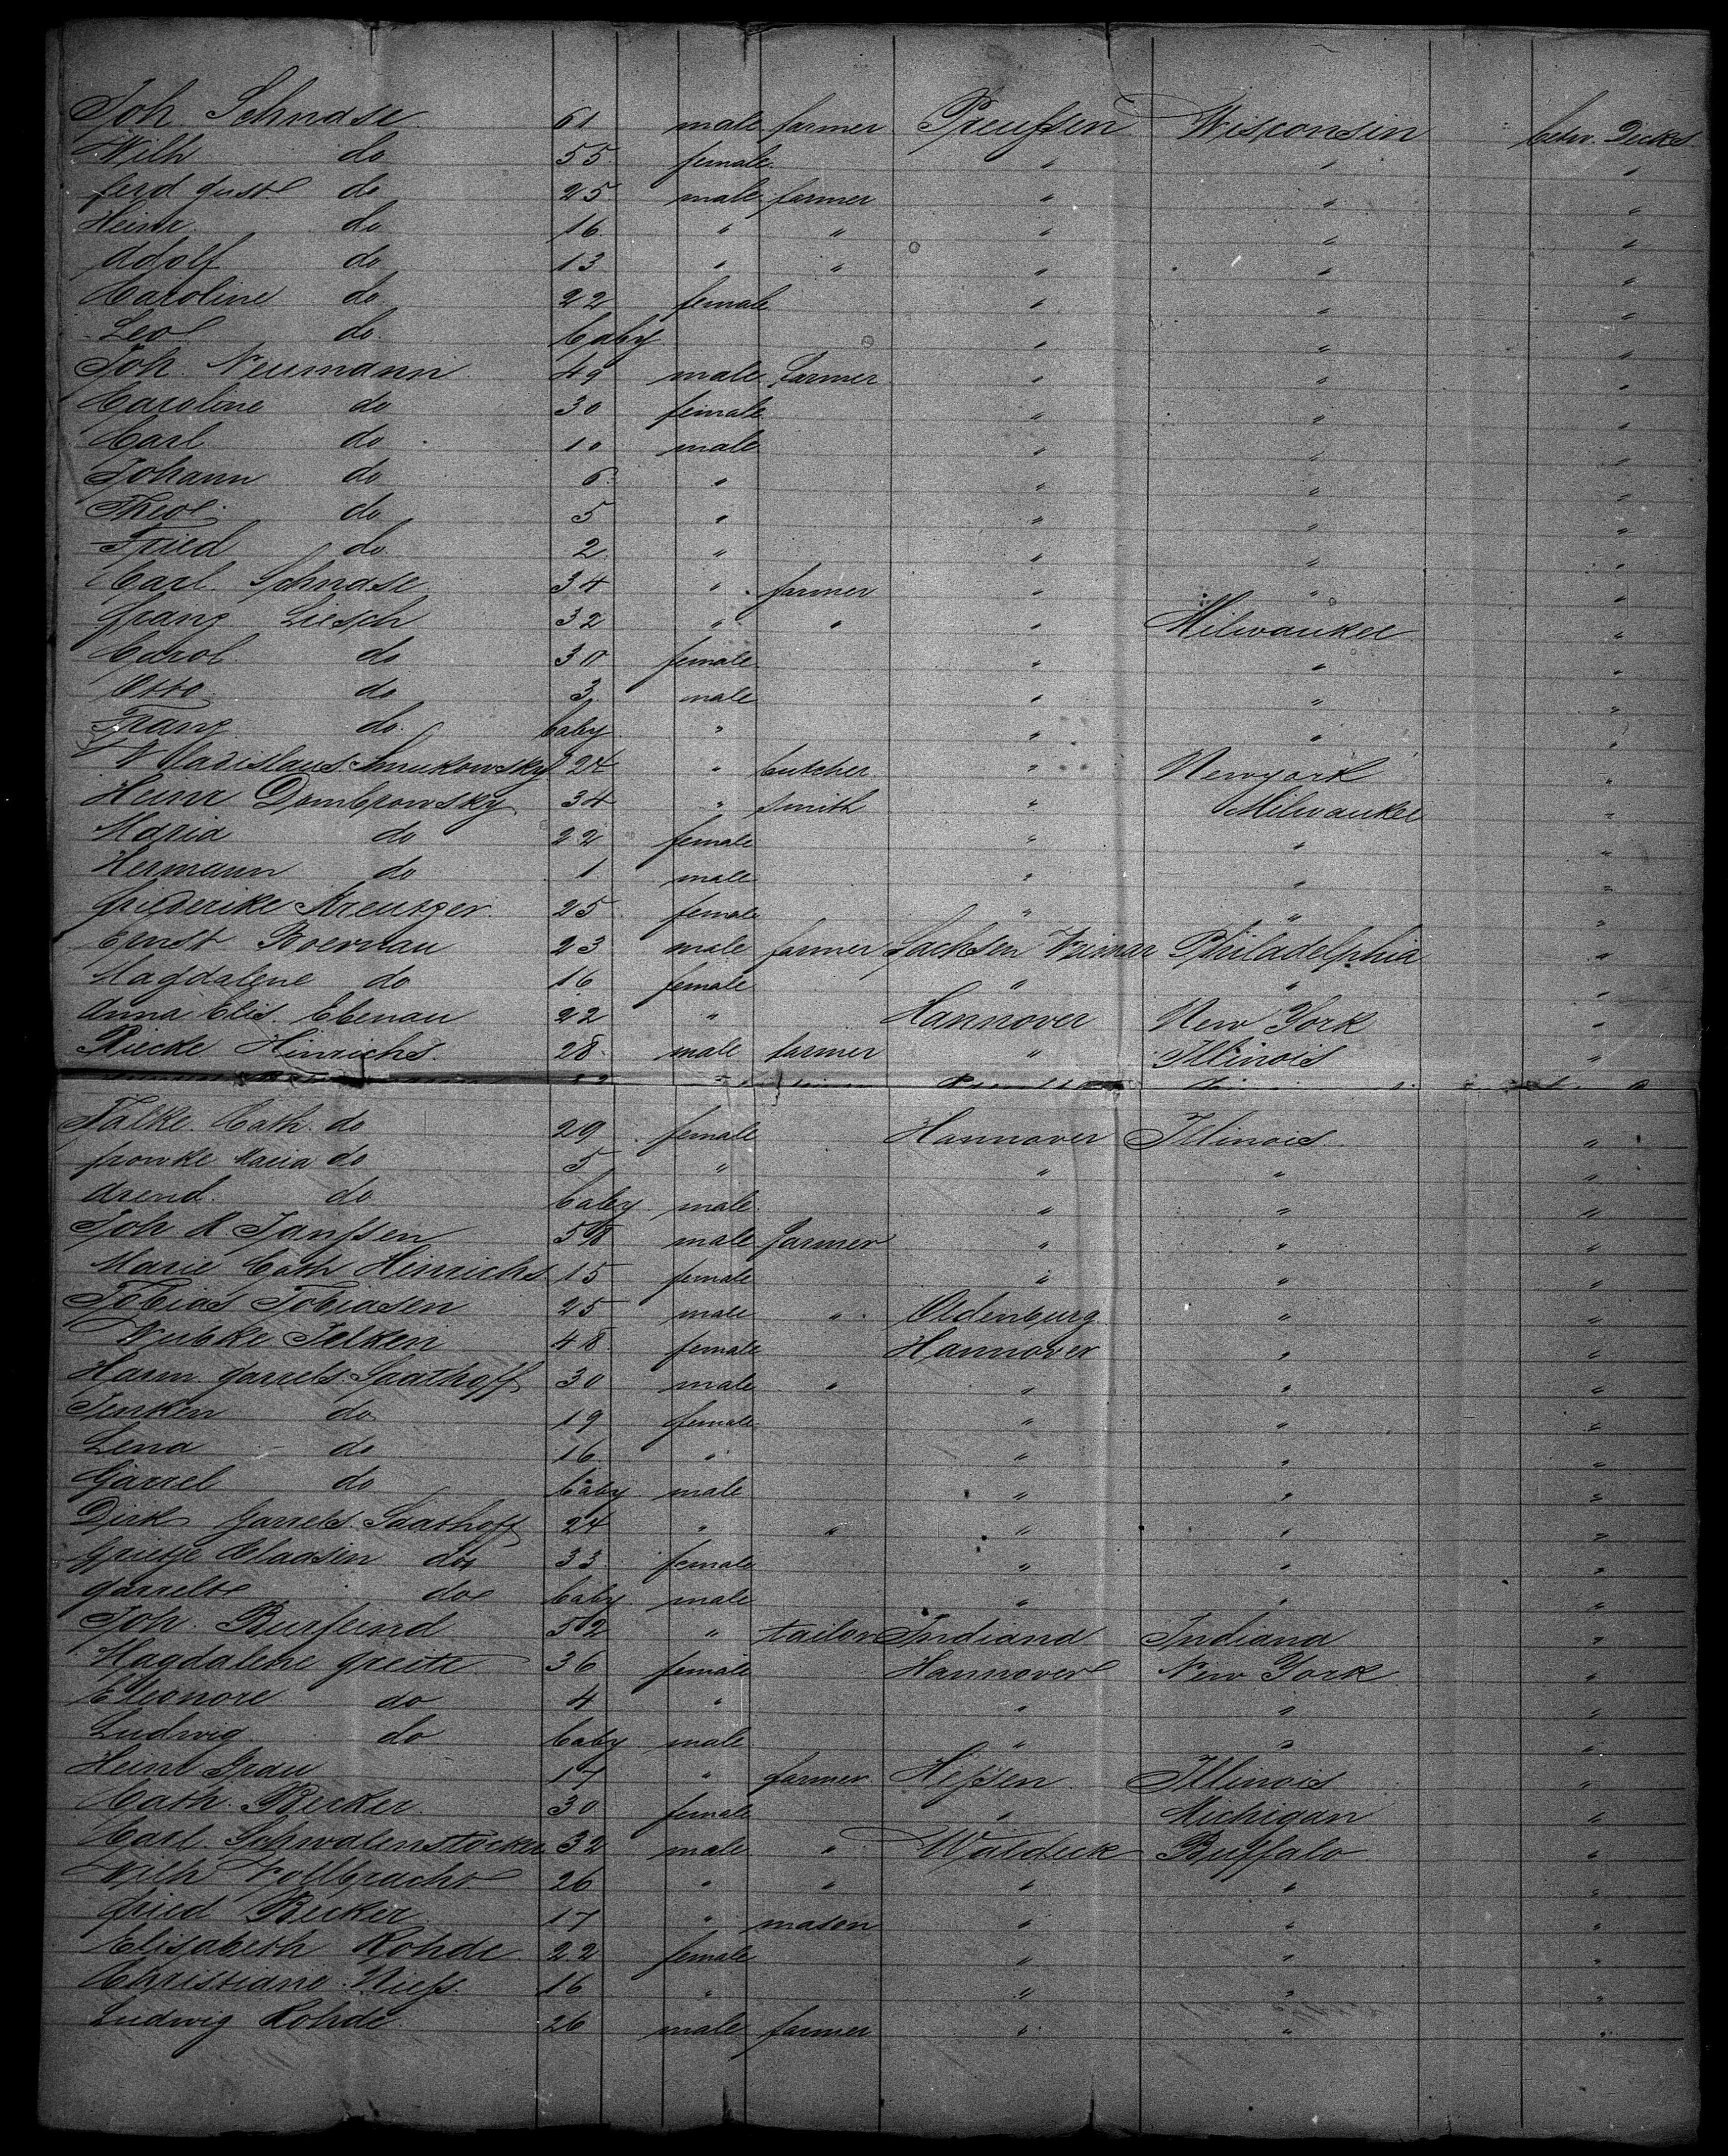 Joh. Schnase 61 male farmer Preußen Wisconsin betw. Decks
Wilh do 55 female " " "
ferd Gust. do 25 male farmer " " "
Heinr. do 16 " " " " "
Adolf do 13 " " " " "
Caroline do 22 female " " "
Leo do baby " " "
Joh. Neumann 49 male farmer " " "
Caroline do 30 female " " "
Carl do 10 male " " "
Johann do 6 " " " "
Theo. do 5 " " " "
Fried do 2 " " " "
Carl Schnase 34 " farmer " " "
Franz Liesch 32 " " " Milwaukee "
Carol. do 30 female " " "
Otto do 3 male " " "
Franz do. baby " " " "
Wladislaus Smukowsky 24 " butcher " Newyork "
Heinr Dombrowsky 34 " smith " Milwaukee "
Maria do 22 female " " "
Hermann do 1 male " " "
Friederike Kreutzer 25 female " " "
Ernst Boernau 23 male farmer Sachsen Weimar Philadelphia "
Magdalene do 16 female " " "
Anna Elis. Ebenau 22 " Hannover New York "
Riecke Hinrichs 28 male farmer " Illinois "
Falke Cath. do 29 female Hannover Illinois "
frowke Maria do 5 " " " "
Arend. do baby male " " "
Joh R Janßen 58 male farmer " " "
Marie Cath Hinrichs 15 female " " "
Tobias Tobiasen 25 male " Oldenburg " "
Wubke Jelken 48 female Hannover " "
Harm Garrels Saathoff 30 male " " " "
Jenken do 19 female " " "
Lena do 16 " " " "
Garrel do baby male " " "
Dirk Garrels Saathoff 24 " " " " "
Grietje Claasen do 33 female " " "
garrelt do baby male " " "
Joh. Burfeind 52 " tailor Indiana Indiana "
Magdalene Greite 36 female Hannover New York "
Eleonore do 4 " " " "
Ludwig do baby male " " "
Heinr Grau 17 " farmer Heßen Illinois "
Cath. Becker 30 female " Michigan "
Carl Schwalenstöcker 32 male " Waldeck Buffalo "
Wilh Vollbracht 26 " " " " "
fried Becker 17 " mason " " "
Elisabeth Rohde 22 female " " "
Christiane Nieß 16 " " " "
Ludwig Rohde 26 male farmer " " "